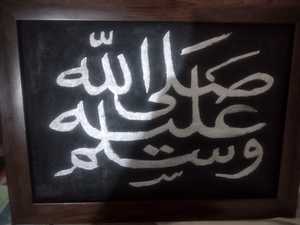 صَلَى اللّٰه
عليه
وسلّم